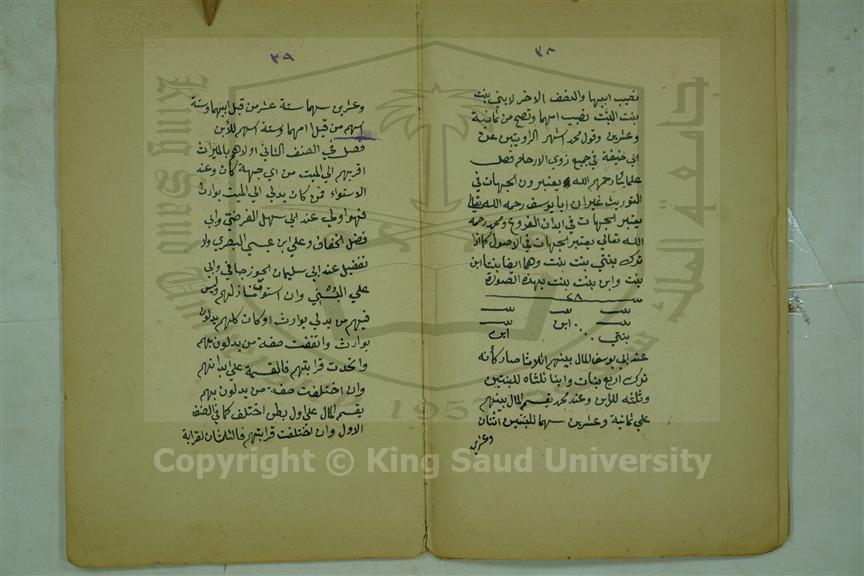 ٣٨
نصيب ابيهما والنصف الاخر لابني بنت
بنت البنت نصيب امهما وتصح من ثمانية
وعشرين وقول محمد اشهر الروايتين عن
ابي حنيفة في جميع ذوي الارحام فصل
علماؤنا رحمهم الله يعتبرون الجهات في
التوريث غير ان ابا يوسف رحمه الله تعالى
يعتبر الجهات في ابدان الفروع ومحمد رحمه
الله تعالى يعتبر الجهات في الاصول كما اذا
ترك بنتي بنت بنت وهما ايضا بنتا ابن
بنت وابن بنت بنت بهذه الصورة
٢٨
بنت بنت بنت
بنت ابن بنت
بنتي ابن
عند ابي يوسف المال بينهم اثلاثا صار كأنه
ترك اربع بنات وابنا ثلثاه للبنتين
وثلثه للابن وعند محمد يقسم المال بينهم
على ثمانية وعشرين سهما للبنتين اثنان
وعشرين
٣٩
وعشرين سهما ستة عشر من قبل ابيهما وستة
اسهم من قبل امهما وستة اسهم للابن
فصل في الصنف الثاني اولاهم بالميراث
اقربهم الى الميت من اي جهة كان وعند
الاستواء فمن كان يدلي الى الميت بوارث
فهو اولى عند ابي سهل الفرضي وابي
فضل الخفاف وعلي ابن عيسى البصري ولا
تفضيل عند ابي سليمان الجوزجاني وابي
علي البستي وان استوت منازلهم وليس
فيهم من يدلي بوارث او كان كلهم يدلون
بوارث واتفقت صفة من يدلون بهم
واتحدت قرابتهم فالقسمة على ابدانهم
وان اختلفت صفة من يدلون بهم
يقسم المال على اول بطن اختلف كما في الصنف
الاول وان اختلفت قرابتهم فالثلثان لقرابة
جامعة الملك سعود
King Saud University
1957
Copyright © King Saud University